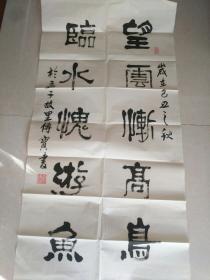 歲在己丑之秋
望雲慚高鳥
臨水愧游魚
於孟子故里傅書